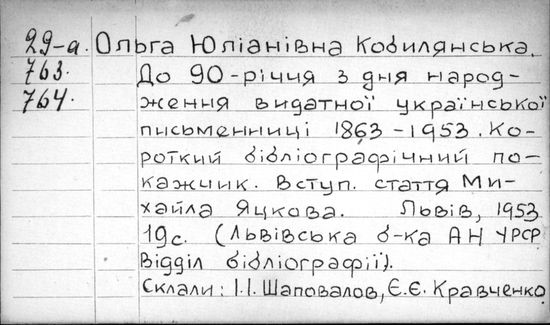 29-а. Ольга Юліанівна Кобилянська.
763. До 90-річчя з дня народ-
764. ження видатної української
письменниці 1863-1953. Ко-
роткий бібліографічний по-
кажчик. Вступ. стаття Ми-
хайла Яцкова. Львів, 1953
19с. (Львівська б-ка АН УРСР
Відділ бібліографії).
Склали: І.І. Шаповалов, Є.Є. Кравченко